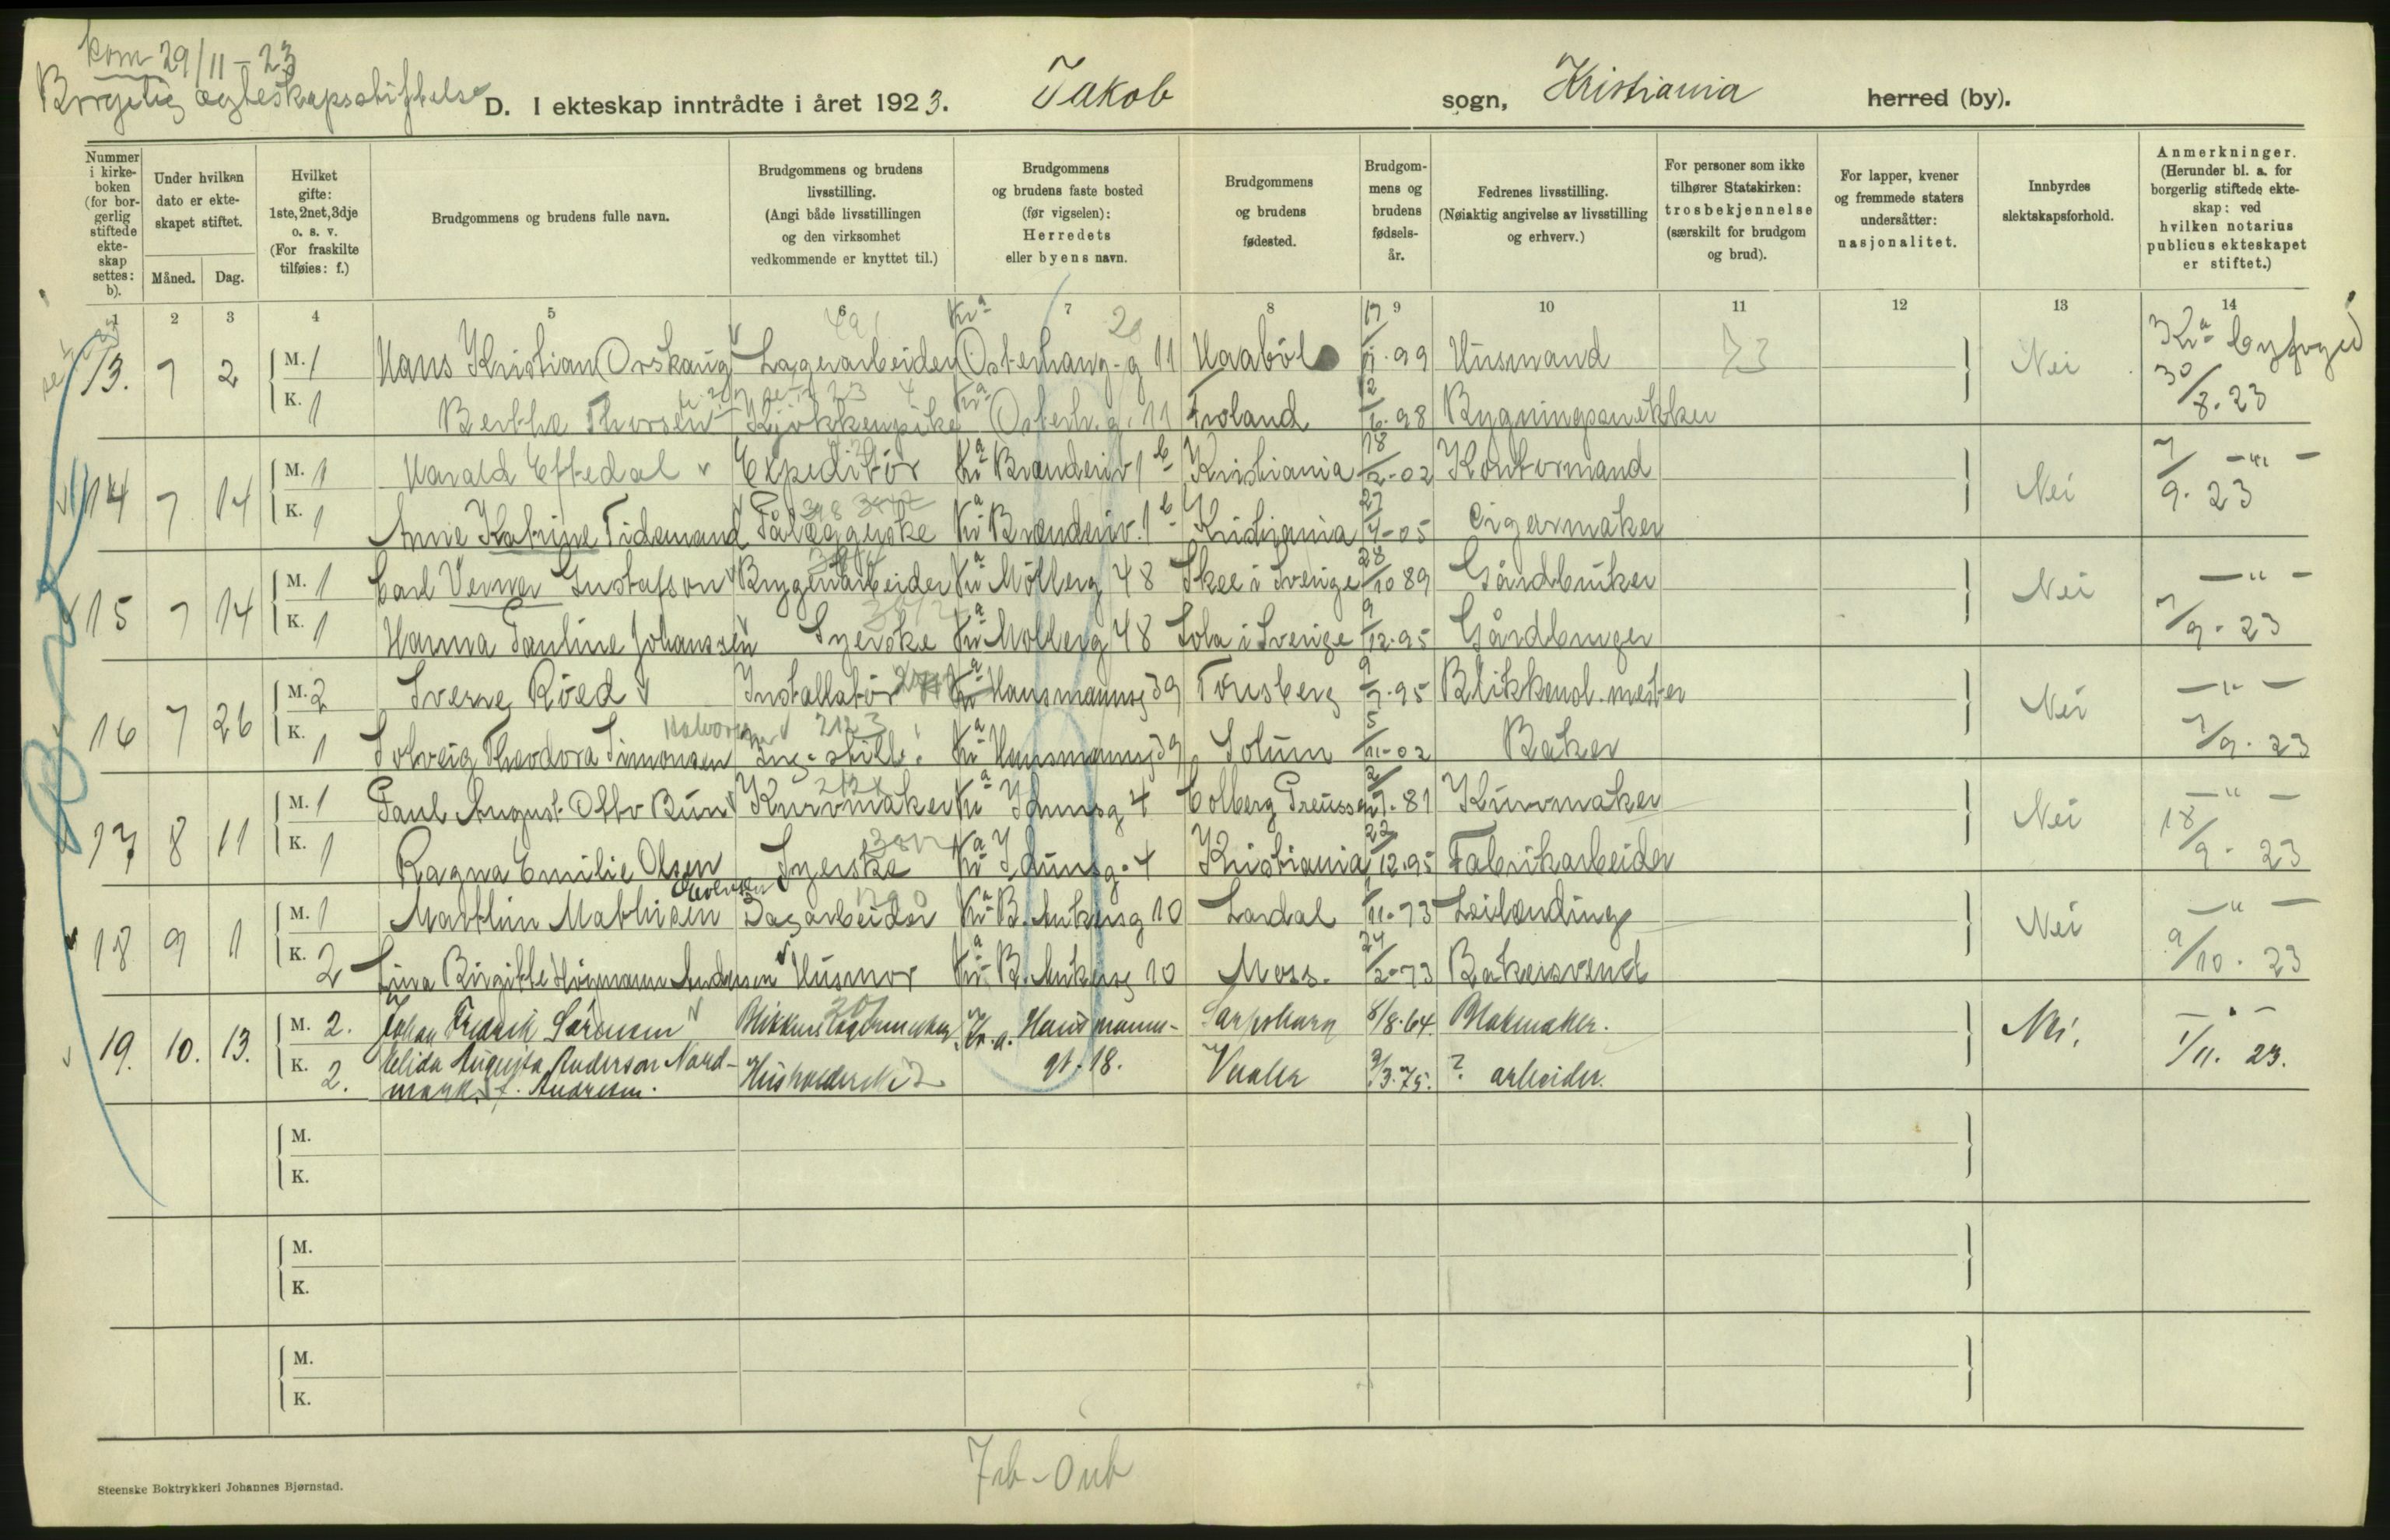 kom 29/11-23
Borgelig ægteskapsstiftelse
D. I ekteskap inntrådte i året 1923. Jakob sogn, Kristiania herred (by).
Nummer i kirkeboken (for borgerlig stiftede ekteskap settes: b).
Under hvilken dato er ekteskapet stiftet.
Måned. Dag.
Hvilket gifte: 1ste, 2net, 3dje o. s. v. (For fraskilte tilføies: f.)
Brudgommens og brudens fulle navn.
Brudgommens og brudens livsstilling. (Angi både livsstillingen og den virksomhet vedkommende er knyttet til.)
Brudgommens og brudens faste bosted (før vigselen): Herredets eller byens navn.
Brudgommens og brudens fødested.
Brudgommens og brudens fødselsår.
Fedrenes livsstilling. (Nøiaktig angivelse av livsstilling og erhverv.)
For personer som ikke tilhører Statskirken: trosbekjennelse (særskilt for brudgom og brud).
For lapper, kvener og fremmede staters undersåtter: nasjonalitet.
Innbyrdes slektskapsforhold.
Anmerkninger. (Herunder bl. a. for borgerlig stiftede ekteskap: ved hvilken notarius publicus ekteskapet er stiftet.)
1 2 3 4 5 6 7 8 9 10 11 12 13 14
13. 7 2 M. 1 Hans Kristian Orskaug Lagerarbeider Kra Osterhausg 11 Haabøl 99 Husmand Nei Kra byfoged
K. 1 Bertha Thorsen Kjøkkenpike Kra Osterh.g. 11 Froland 12/6-98 Bygningssnekker 30/8-23
14 7 14 M. 1 Harald Eftedal Expeditør Kra Brenneriv 1 b Kristiania 18/2-02 Kontormand Nei -"-
K. 1 Anne Katrine Tidemand Pålæggerske Kra Brenneriv. 1 b Kristiania 27/4-05 Cigarmaker 7/9-23
15 7 14 M. 1 Carl Verner Gustafson Bryggeriarbeider Kra Møllerg 48 Skee i Sverige 28/10 89 Gårdbruker Nei -"-
K. 1 Hanna Pauline Johanssen Syerske Kra Møllerg 48 Lola i Sverige 9/12-95 Gårdbruger 7/9-23
16 7 26 M. 2 Sverre Röed Installatör Kra Hausmannsg 39 Tønsberg 95 Blikkensl. mester Nei -"-
K. 1 Solveig Theodora Simonsen Halvorsen 2123 Kra Hausmannsg 39 Solum 5/11-02 Baker 7/9-23
17 8 11 M. 1 Paul August Otto Bun Kurvmaker Kra Idunsg 4 Colberg Preussen 81 Kurvmaker Nei -"-
K. 1 Ragna Emilie Olsen Syerske Kra Idunsg. 4 Kristiania 23/12.95 Fabrikarbeider 18/9-23
18 9 1 M. 1 Matthin Mathisen Dagarbeider Kra B. Ankersg 10 Lardal 11-73 Leilænding Nei -"-
K. 2 Lina Birgitte Andersen Husmor Kra B. Ankersg 10 Moss. 24/2-73 Bakersvend 9/10-23
19. 10. 13. M. 2. Johan Fredrik Sørensen Kr.a. Hausmanns- Sarpsborg 8/8-64. Blokmaker. Nei. -"-
K. 2. Helida Augusta Anderson Nord- Husholderske gt. 18. Vaaler 3/3.75. ? arbeider. 1/11. 23.
mark f. Andresen.
M.
K.
M.
K.
M.
K.
Steenske Boktrykkeri Johannes Bjørnstad.